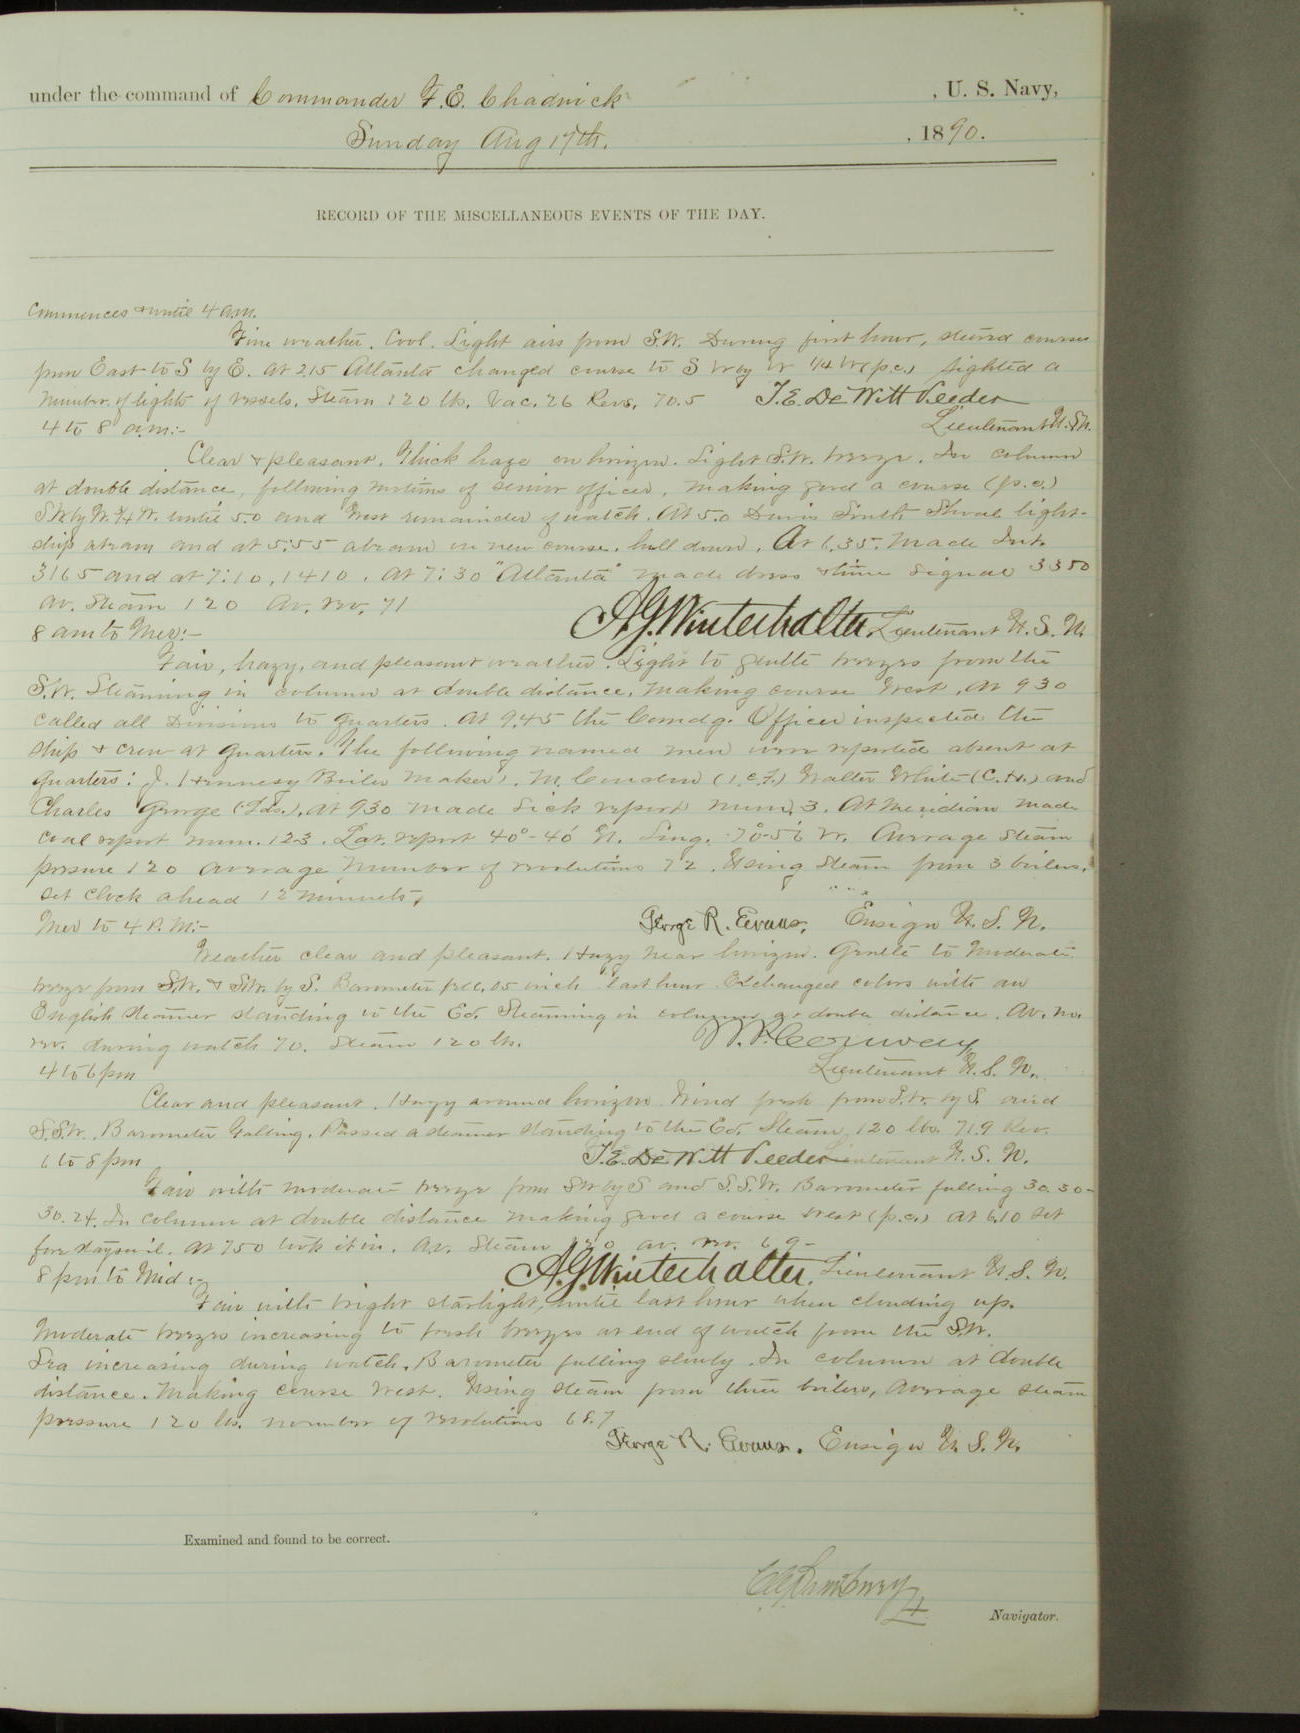 under the command of Commander F. E. Chadwick , U. S. Navy,
Sunday Aug 17th. , 1890.
RECORD OF THE MISCELLANEOUS EVENTS OF THE DAY.
Commences & until 4 a.m.
Fine weather. Cool. Light airs from S.W. During first hour, steered courses
from East to S by E. At 2.15 Atlanta changed course to S W by W ¼ W (p.c.) Sighted a
number of lights of vessels. Steam 120 lbs. Vac. 26 Revs. 70.5 T. E. DeWitt Veeder
Lieutenant U.S.N.
4 to 8 a.m:-
Clear & pleasant. Thick haze on horizon. Light S.W. breeze. In column
at double distance, following motions of senior officer, making good a course (p.c.)
SW by W. ¼ W. until 5.0 and West remainder of watch. At 5.0 Davis South Shoal light-
ship abeam and at 5:55 abeam on new course, hull down. At 6.35. made Int.
3165 and at 7:10, 1410. At 7:30 "Atlanta" made dress & time signal 3350
Av. Steam 120 Av. rev. 71
A.G. Winterhalter, Lieutenant U. S. N.
8 am to Mer:-
Fair, hazy, and pleasant weather. Light to gentle breezes from the
S.W. Steaming in column at double distance, making course West. At 9 30
called all Divisions to quarters. At 9.45 the Comdg. Officer inspected the
ship & crew at quarters. The following named men were reported absent at
quarters: J. Hennesy (Boiler Maker), M. (1.c.F.) Walter White (C.H.) and
Charles George (Lds.). At 9 30 made sick report num. 3. At Meridian made
coal report num. 123. Lat. report 40°-40' N. Long. 70°-56' W. Average steam
pressure 120 average number of revolutions 72. Using steam from 3 boilers.
Set clock ahead 12 minuets.
George R. Evans, Ensign U. S. N.
Mer to 4 P. M:-
Weather clear and pleasant. Hazy near horizon. Gentle to moderate
breeze from S.W. & S.W. by S. Barometer fell .05 inch last hour. Exchanged colors with an
English steamer standing to the Ed. Steaming in column at double distance. Av. no.
rev. during watch 70. Steam 120 lbs.
W. P. Conway
Lieutenant U. S. N.
4 to 6 pm
Clear and pleasant. Hazy around horizon. Wind fresh from S.W. by S. and
S.S.W. Barometer Falling. Passed a steamer standing to the Ed. Steam 120 lbs. 71.9 Rev.
T. E. DeWitt Veeder Lieutenant U. S. N.
6 to 8 pm
Fair with moderate breeze from SW by S and S.S.W. Barometer falling 30.30-
30.24. In column at double distance making good a course West (p.c.) At 6.10 set
fore staysail. At 7.50 took it in. Av. Steam 120 av. rev. 69-
A.G. Winterhalter, Lieutenant U. S. N.
8 pm to Mid:-
Fair with bright starlight, until last hour when clouding up.
Moderate breezes increasing to fresh breezes at end of watch from the S.W.
Sea increasing during watch. Barometer falling slowly. In column at double
distance. Making course West. Using steam from three boilers, average steam
pressure 120 lbs. number of revolutions 68.7
George R. Evans. Ensign U. S. N.
Examined and found to be correct.
Navigator.